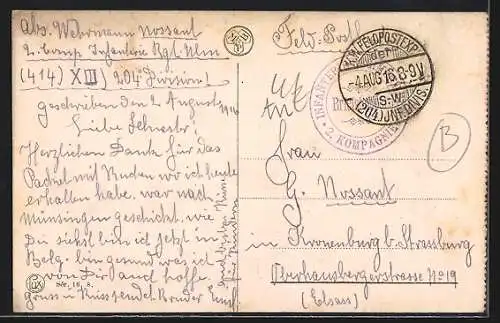 Abs. Wehrmann Nossant
2. Comp Infanterie Rgt. Ulm
(414) XIII 204 Division!
geschrieben den 2. August 1916
Liebe Schwester!
Herzlichen Dank für das
Packet mit Nudeln wo ich heute
erhalten habe. war nach
Münsingen geschickt, wie
Du siehst bin ich jetzt in
Belg. bin gesund was ich
von Dir auch hoffe
Gruss u Kuss sendet Bruder
und
Kindern
Sér. 18, 8.
Feld-Post
K.W. FELDPOSTEXP.
der
-4.AUG 16 8-9V
S.W.
(204.) INF.DIVIS.
INFANTERIE
2. KOMPAGNIE
Frau
G. Nossant
in Kronenburg b. Strassburg
Oberhausbergerstrasse No 19
(Elsass)
B